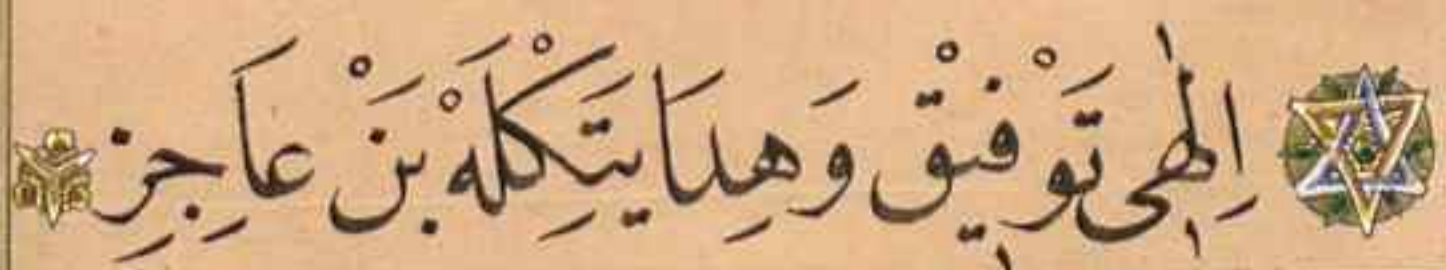 اِلٰهِى تَوْفِيْق وَهِدَايَتِكْلَهْ بَنْ عَاجِزِ